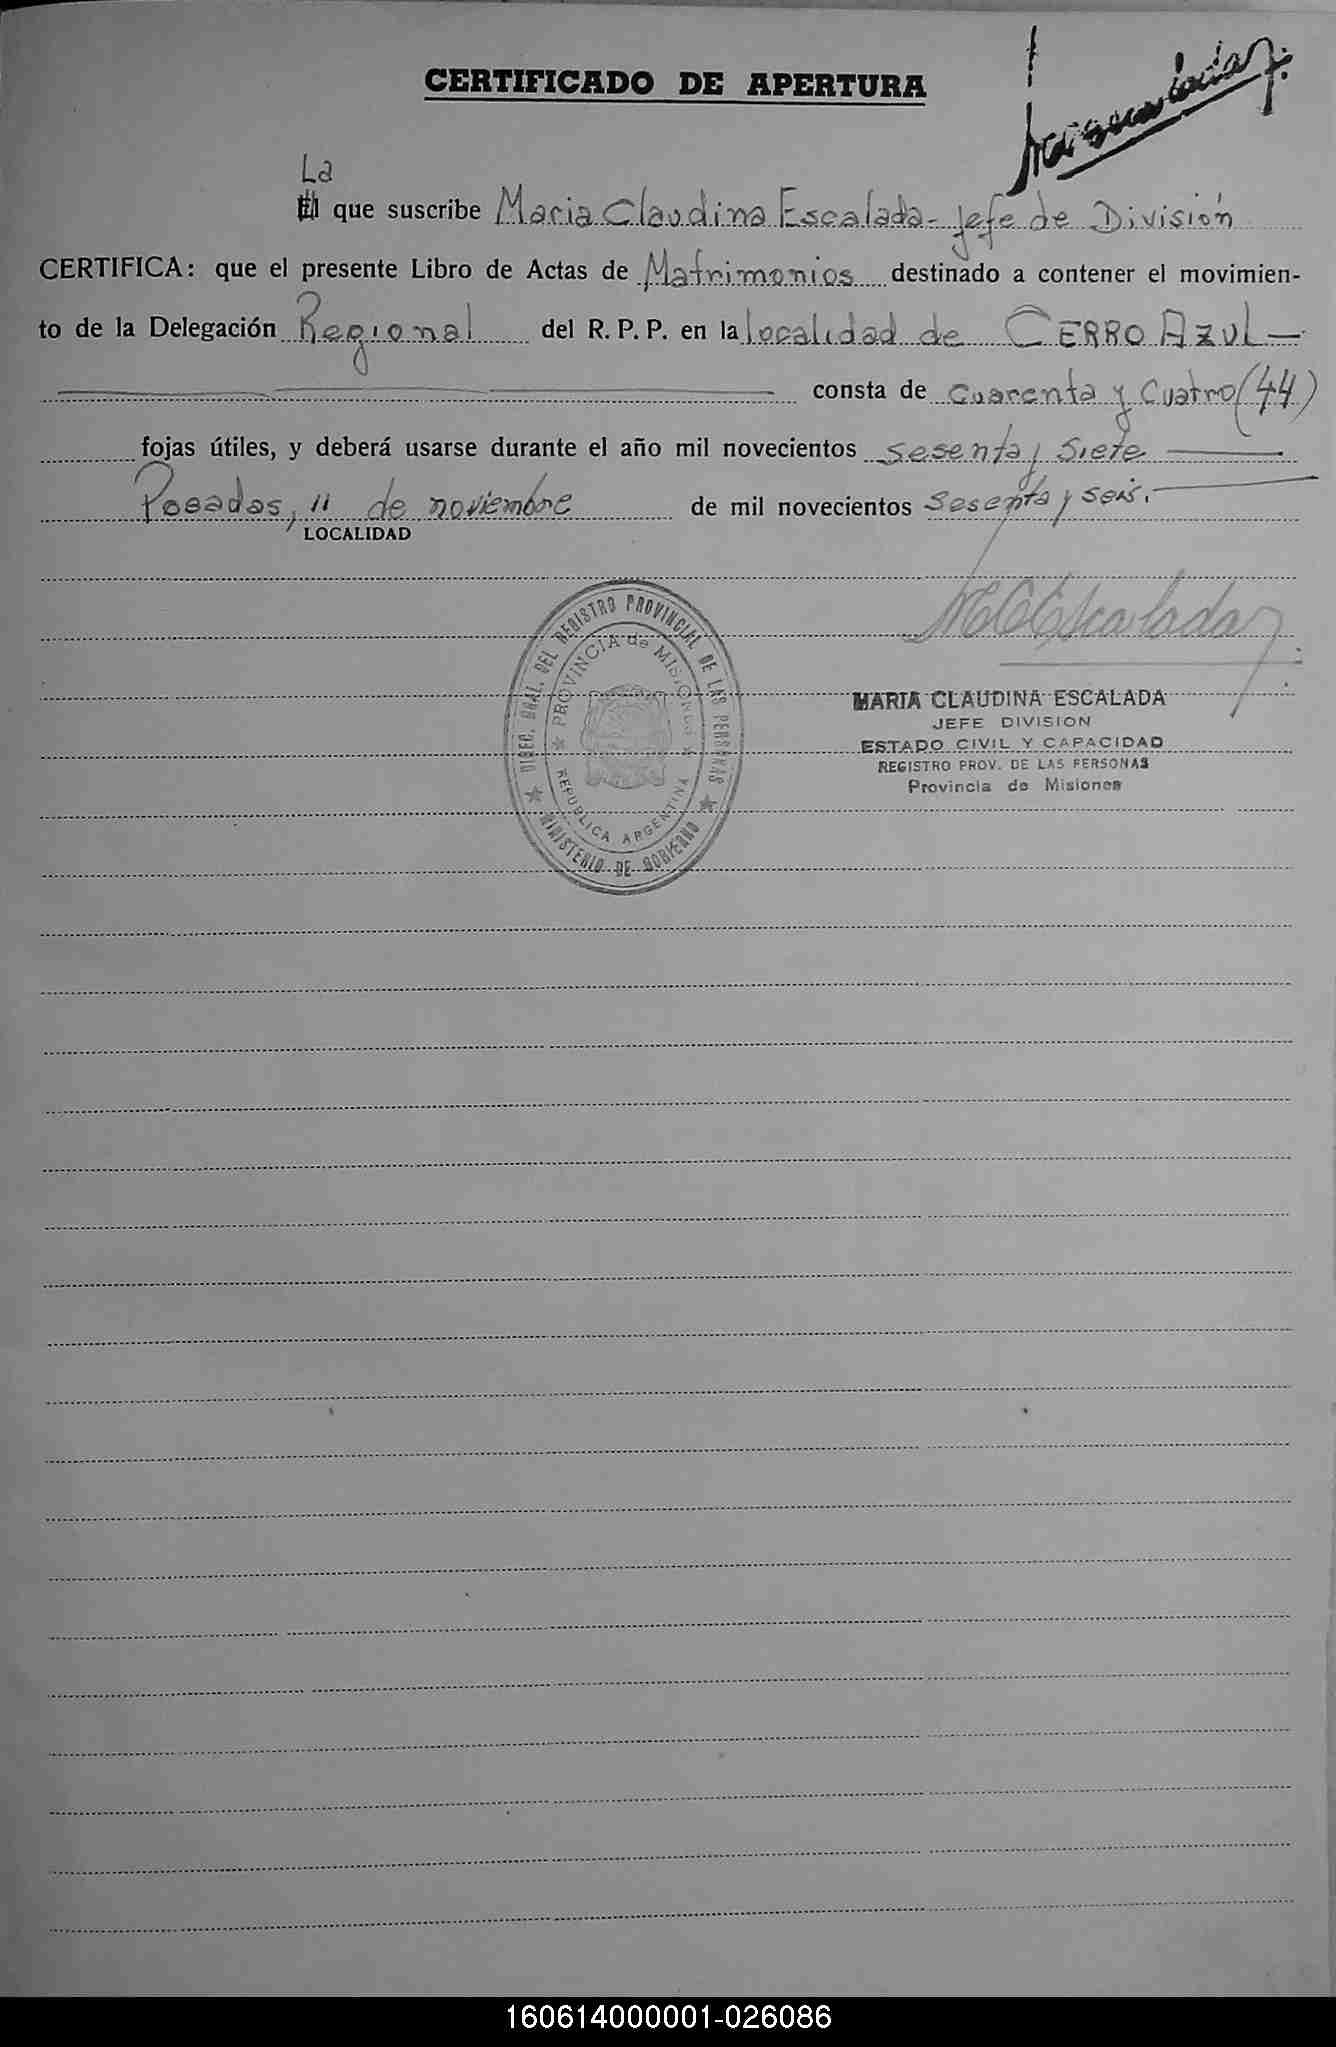 CERTIFICADO DE APERTURA
La
El que suscribe Maria Claudina Escalada - Jefe de División
CERTIFICA: que el presente Libro de Actas de Matrimonios destinado a contener el movimien-
to de la Delegación Regional del R. P. P. en la localidad de CERRO AZUL —
consta de cuarenta y cuatro (44)
fojas útiles, y deberá usarse durante el año mil novecientos sesenta y siete
Posadas, 11 de noviembre de mil novecientos sesenta y seis.
LOCALIDAD
DIREC. GRAL. DEL REGISTRO PROVINCIAL DE LAS PERSONAS
PROVINCIA de MISIONES
REPUBLICA ARGENTINA
MINISTERIO DE GOBIERNO
MCEscalada
MARIA CLAUDINA ESCALADA
JEFE DIVISION
ESTADO CIVIL Y CAPACIDAD
REGISTRO PROV. DE LAS PERSONAS
Provincia de Misiones
160614000001-026086